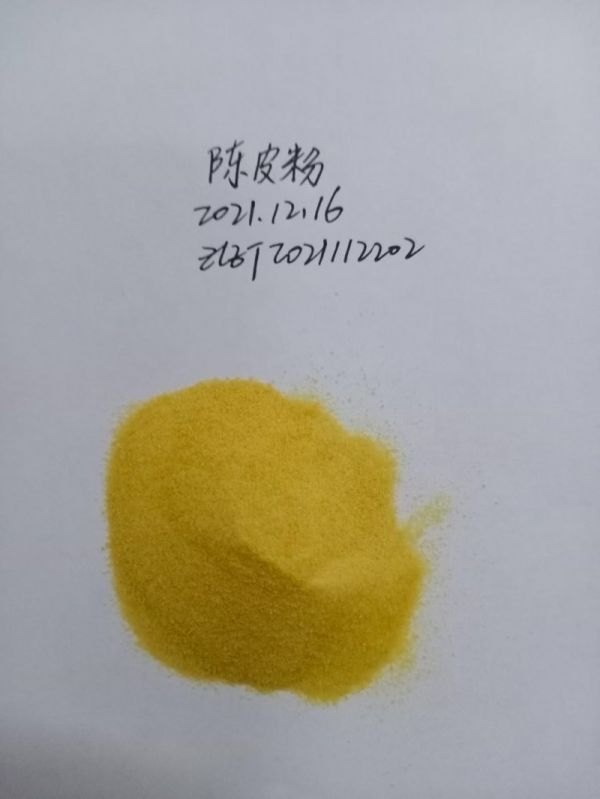 陈皮粉
2021.12.16
ZLBT2021112202